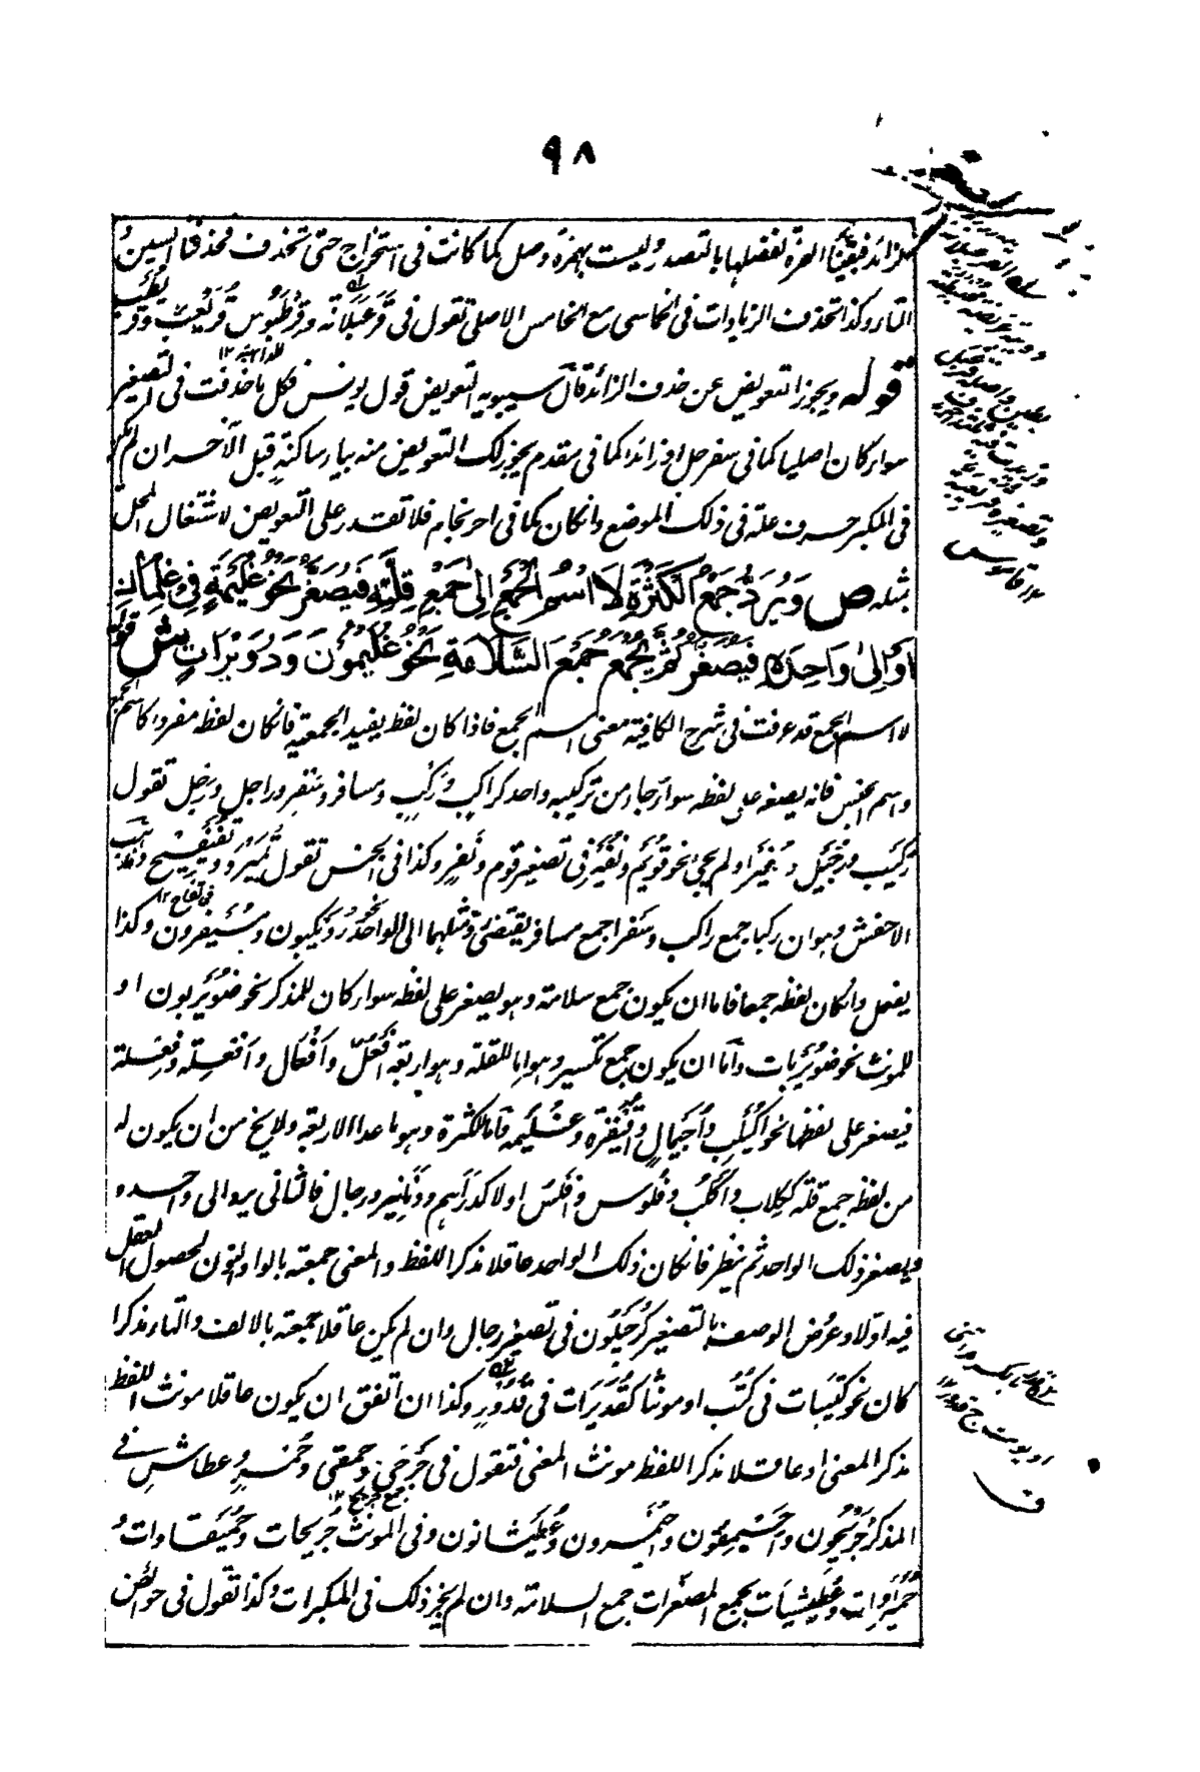 ٩٨
الزائد فبقينا الهمزة لفضلها بالتصدر وليست بهمزة وصل كما كانت فى استخراج حتى تحذف فحذفنا السين و
التاء وكذا تحذف الزيادات فى الخماسى مع الخامس الاصلى تقول فى قرعبلانة وقرطبوس قريعبة وقريطب
قوله ويجوز التعويض عن حذف الزائد قال سيبويه التعويض قول يونس فكل ما حذفت فى التصغير
سواء كان اصليا كما فى سفرجل او زائدا كما فى مقدم يجوز لك التعويض منه بياء ساكنة قبل الآخر ان لم يكن
فى المكبر حرف علة فى ذلك الموضع وان كان كما فى احرنجام فلا تقدر على التعويض لاشتغال المحل
بمثله ص وَيُرَدُّ جَمْعُ الْكَثْرَةِ لَا اسْمُ الْجَمْعِ اِلىٰ جَمْعِ قِلَّتِهِ فَيُصَغَّرُ نَحْوُ غُلَيْمَةٍ فِى غِلْمَانٍ
اَوْ اِلىٰ وَاحِدِهِ فَيُصَغَّرُ ثُمَّ يُجْمَعُ جَمْعَ السَّلَامَةِ نَحْوُ غُلَيِّمُوْنَ وَدُوَيْرَاتٍ ش قوله
لا اسم الجمع قد عرفت فى شرح الكافية معنى اسم الجمع فاذا كان لفظ يفيد الجمعية فان كان لفظه مفردا كاسم الجمع
واسم الجنس فانه يصغر على لفظه سواء جاء من تركيبه واحد كراكب وركب ومسافر وسفر وراجل ورجل تقول
ركيب ورجيل وسفير او لم يجئ نحو قويم ونفير فى تصغير قوم ونفر وكذا فى الجنس تقول تمير وتفيفيح ومذهب
فى تفاح ١٢
الاخفش وهو ان ركبا جمع راكب وسفرا جمع مسافر يقتضى رد مثلهما الى الواحد نحو رويكبون ومسيفرون وكذا
يفعل وان كان لفظه جمعا فاما ان يكون جمع سلامة وهو يصغر على لفظه سواء كان للمذكر نحو ضويربون او
للمونث نحو ضويربات واما ان يكون جمع تكسير وهو اما للقلة وهو اربعة افعل وافعال وافعلة وفعلة
فيصغر على لفظها نحو اكيلب واجيمال واقيفزة وغليمة واما للكثرة وهو ما عدا الاربعة ولا يخ من ان يكون له
من لفظه جمع قلة ككلاب واكلب وفلوس وافلس او لا كدراهم ودنانير ورجال فالثانى يرد الى واحده و
ويصغر ذلك الواحد ثم ينظر فان كان ذلك الواحد عاقلا مذكر اللفظ والمعنى جمعته بالواو والنون لحصول العقل
فيه اولا وعروض الوصف بالتصغير كرجيلون فى تصغير رجال وان لم يكن عاقلا جمعته بالالف والتاء مذكرا
كان نحو كتيبات فى كتب او مونثا كقديرات فى قدور وكذا ان اتفق ان يكون عاقلا مونث اللفظ
مذكر المعنى او عاقلا مذكر اللفظ مونث المعنى فتقول فى جرحى وحمقى وحمر وعطاش فى
المذكر جريحون واحيمقون واحيمرون وعطيشانون وفى المونث جريحات وحميقاوات و
حميراوات وعطيشيات بجمع المصغرات جمع السلامة وان لم يجز ذلك فى المكبرات وكذا تقول فى حوائض